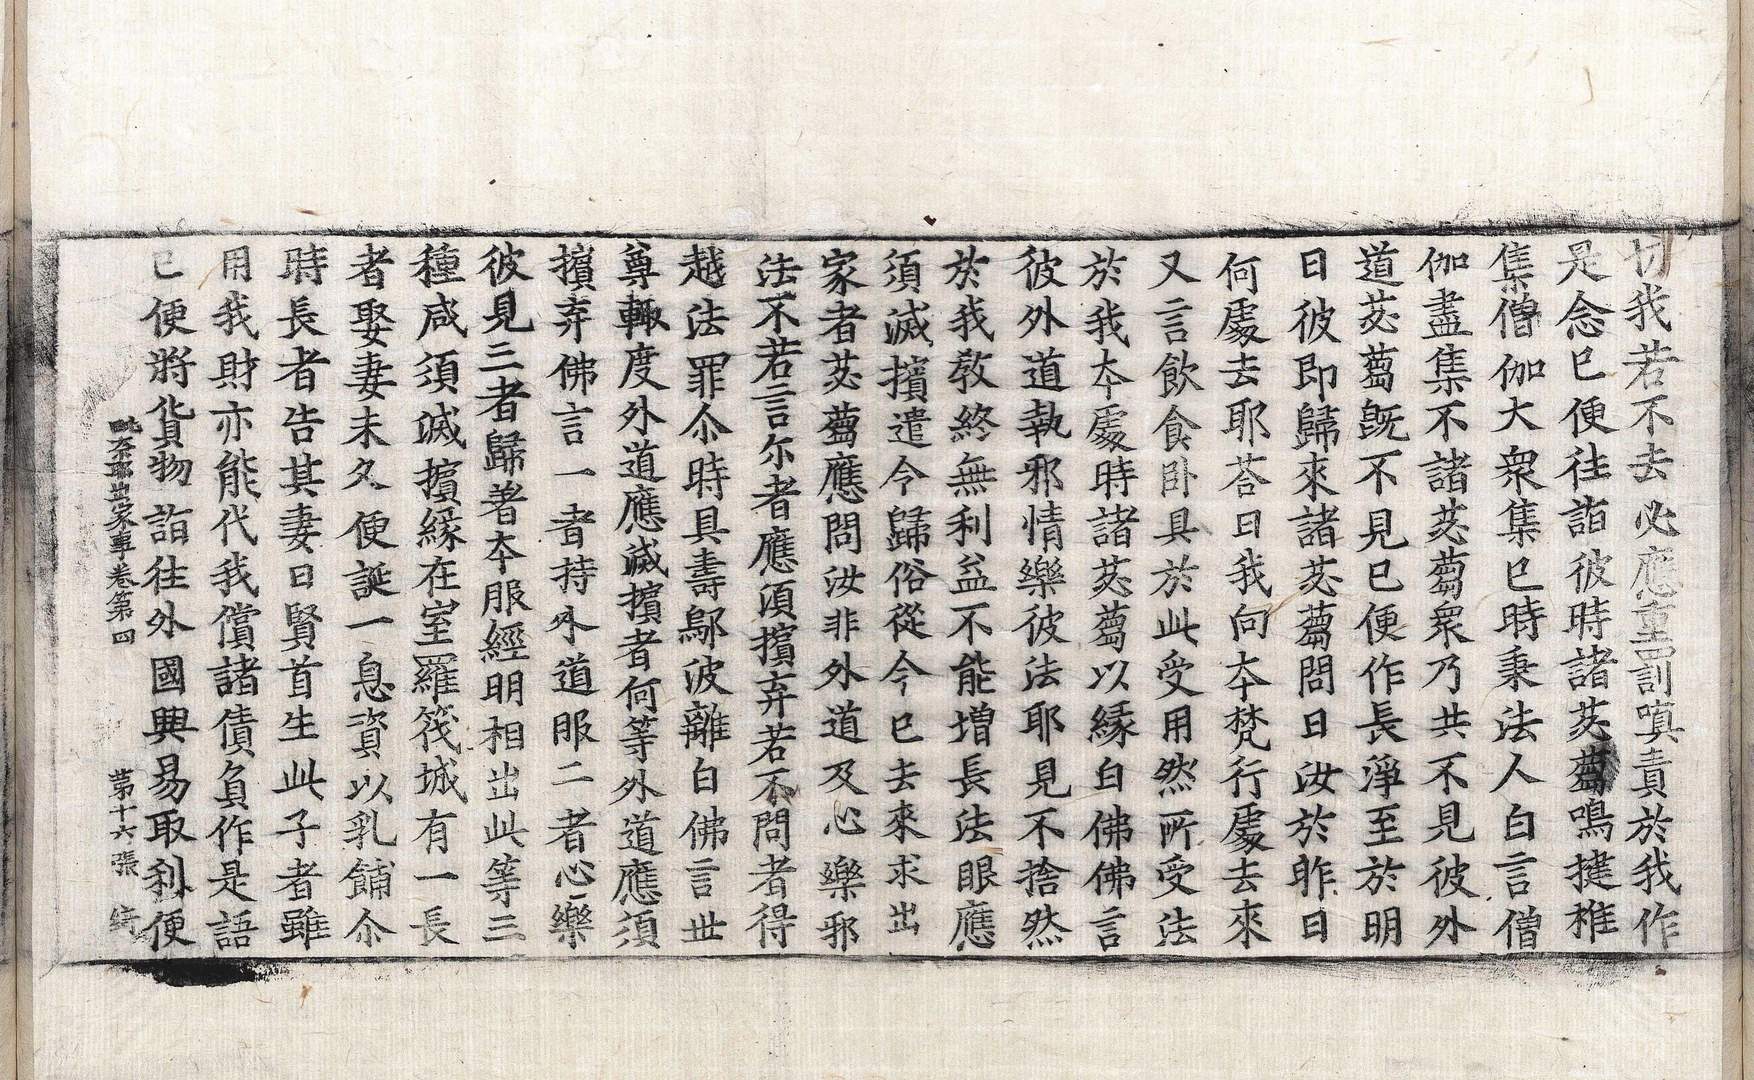 切我若不去必應重罰嗔責於我作
是念已便往詣彼時諸苾蒭鳴揵椎
集僧伽大衆集已時秉法人白言僧
伽盡集不諸苾蒭衆乃共不見彼外
道苾蒭旣不見已便作長淨至於明
日彼即歸來諸苾蒭問曰汝於昨日
何處去耶荅曰我向夲梵行處去來
又言飮食卧具於此受用然所受法
於我夲處時諸苾蒭以緣白佛佛言
彼外道執邪情樂彼法耶見不捨然
於我敎終無利益不能增長法眼應
須滅擯遣令歸俗從今已去來求出
家者苾蒭應問汝非外道及心樂邪
法不若言尒者應須擯弃若不問者得
越法罪尒時具壽鄔波離白佛言世
尊輙度外道應滅擯者何等外道應須
擯弃佛言一者持外道服二者心樂
彼見三者歸著夲服經明相出此等三
種咸須滅擯緣在室羅筏城有一長
者娶妻未久便誕一息資以乳餔尒
時長者告其妻曰賢首生此子者雖
用我財亦能代我償諸債負作是語
已便將貨物詣往外國興易取利便
毗奈耶出家事卷第四 第十六張 綺